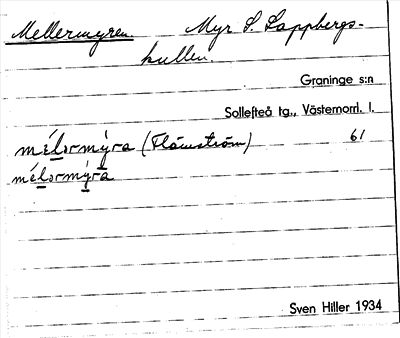 Mellermyren. Myr S. Lappbergs-
kullen.
Graninge s:n
Sollefteå tg., Västernorrl. l.
mélərmy̌ra (Flåmström) 61
mélərmy̌ra
Sven Hiller 1934